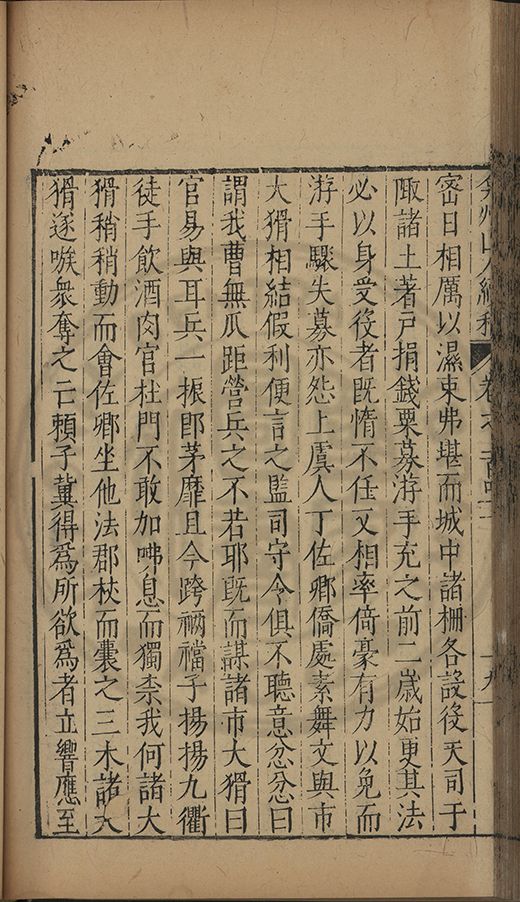 弇州山人續稿 卷之一百四十一 十九
密日相厲以濕束弗堪而城中諸柵各設役夭司于
陬諸土著戸捐錢粟募游手充之前二歲始更其法
必以身受役者既惰不任又相率倚豪有力以免而
游手驟失募亦怨上虞人丁佐卿僑處素舞文與市
大猾相結假利便言之監司守令俱不聽意忿忿曰
謂我曹無爪距營兵之不若耶既而謀諸市大猾曰
官易與耳兵一振郎茅靡且今跨裲襠子揚揚九衢
徒手飲酒肉官杜門不敢加咈息而獨柰我何諸大
猾稍稍動而會佐卿坐他法郡杖而囊之三木諸大
猾遂嗾衆奪之亡賴子冀得爲所欲爲者立響應至